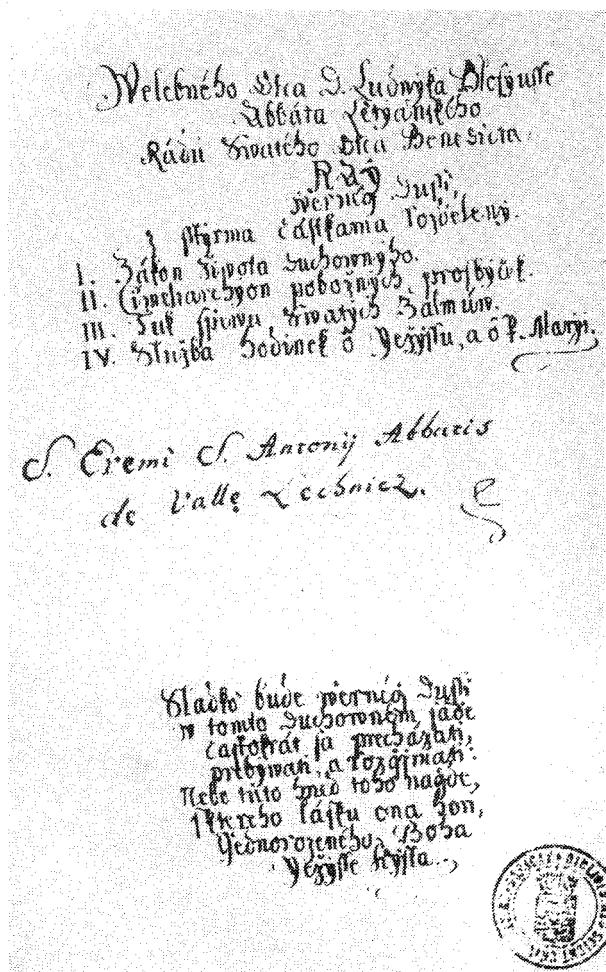 Welebného Otca D. Ludwyka Blosyusse
Abbáta Letyánského
Rádu Swatého Otca Benedicta
RÁG
wernég Dussi,
z styrma částkama rozdeleny.
I. Zákon žiwota duchowného.
II. pobožnych prosbyčk.
III. Luk spewu Swatych Žalmúw.
IV. Služba Hodinek o Gežyssu, a o P. Marygi.
S. Eremi S. Antonij Abbatis
de Valle Lechnicz.
Sladko bude wernég Dussi
w tomto Duchowném ságe
častokrát sa precházati,
prebywati, a rozgjmati:
Nebo tuto hned toho nagde,
Kterého lásku ona hon,
Gednorozeného Boha
Gežysse Krysta.